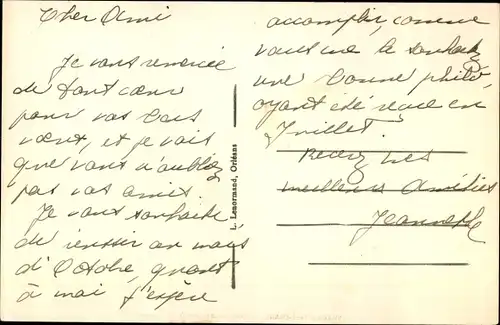 Cher Ami
Je vous remercie
de tout cœur
pour vos bons
vœux, et je vois
que vous n'oubliez
pas vos amis.
Je vous souhaite
de réussir au mois
d'Octobre, quant
à moi j'espère
L. Lenormand, Orléans
accomplir, comme
vous me le souhaitez
une bonne philo,
ayant été reçue en
Juillet.
Recevez mes
meilleures Amitiés